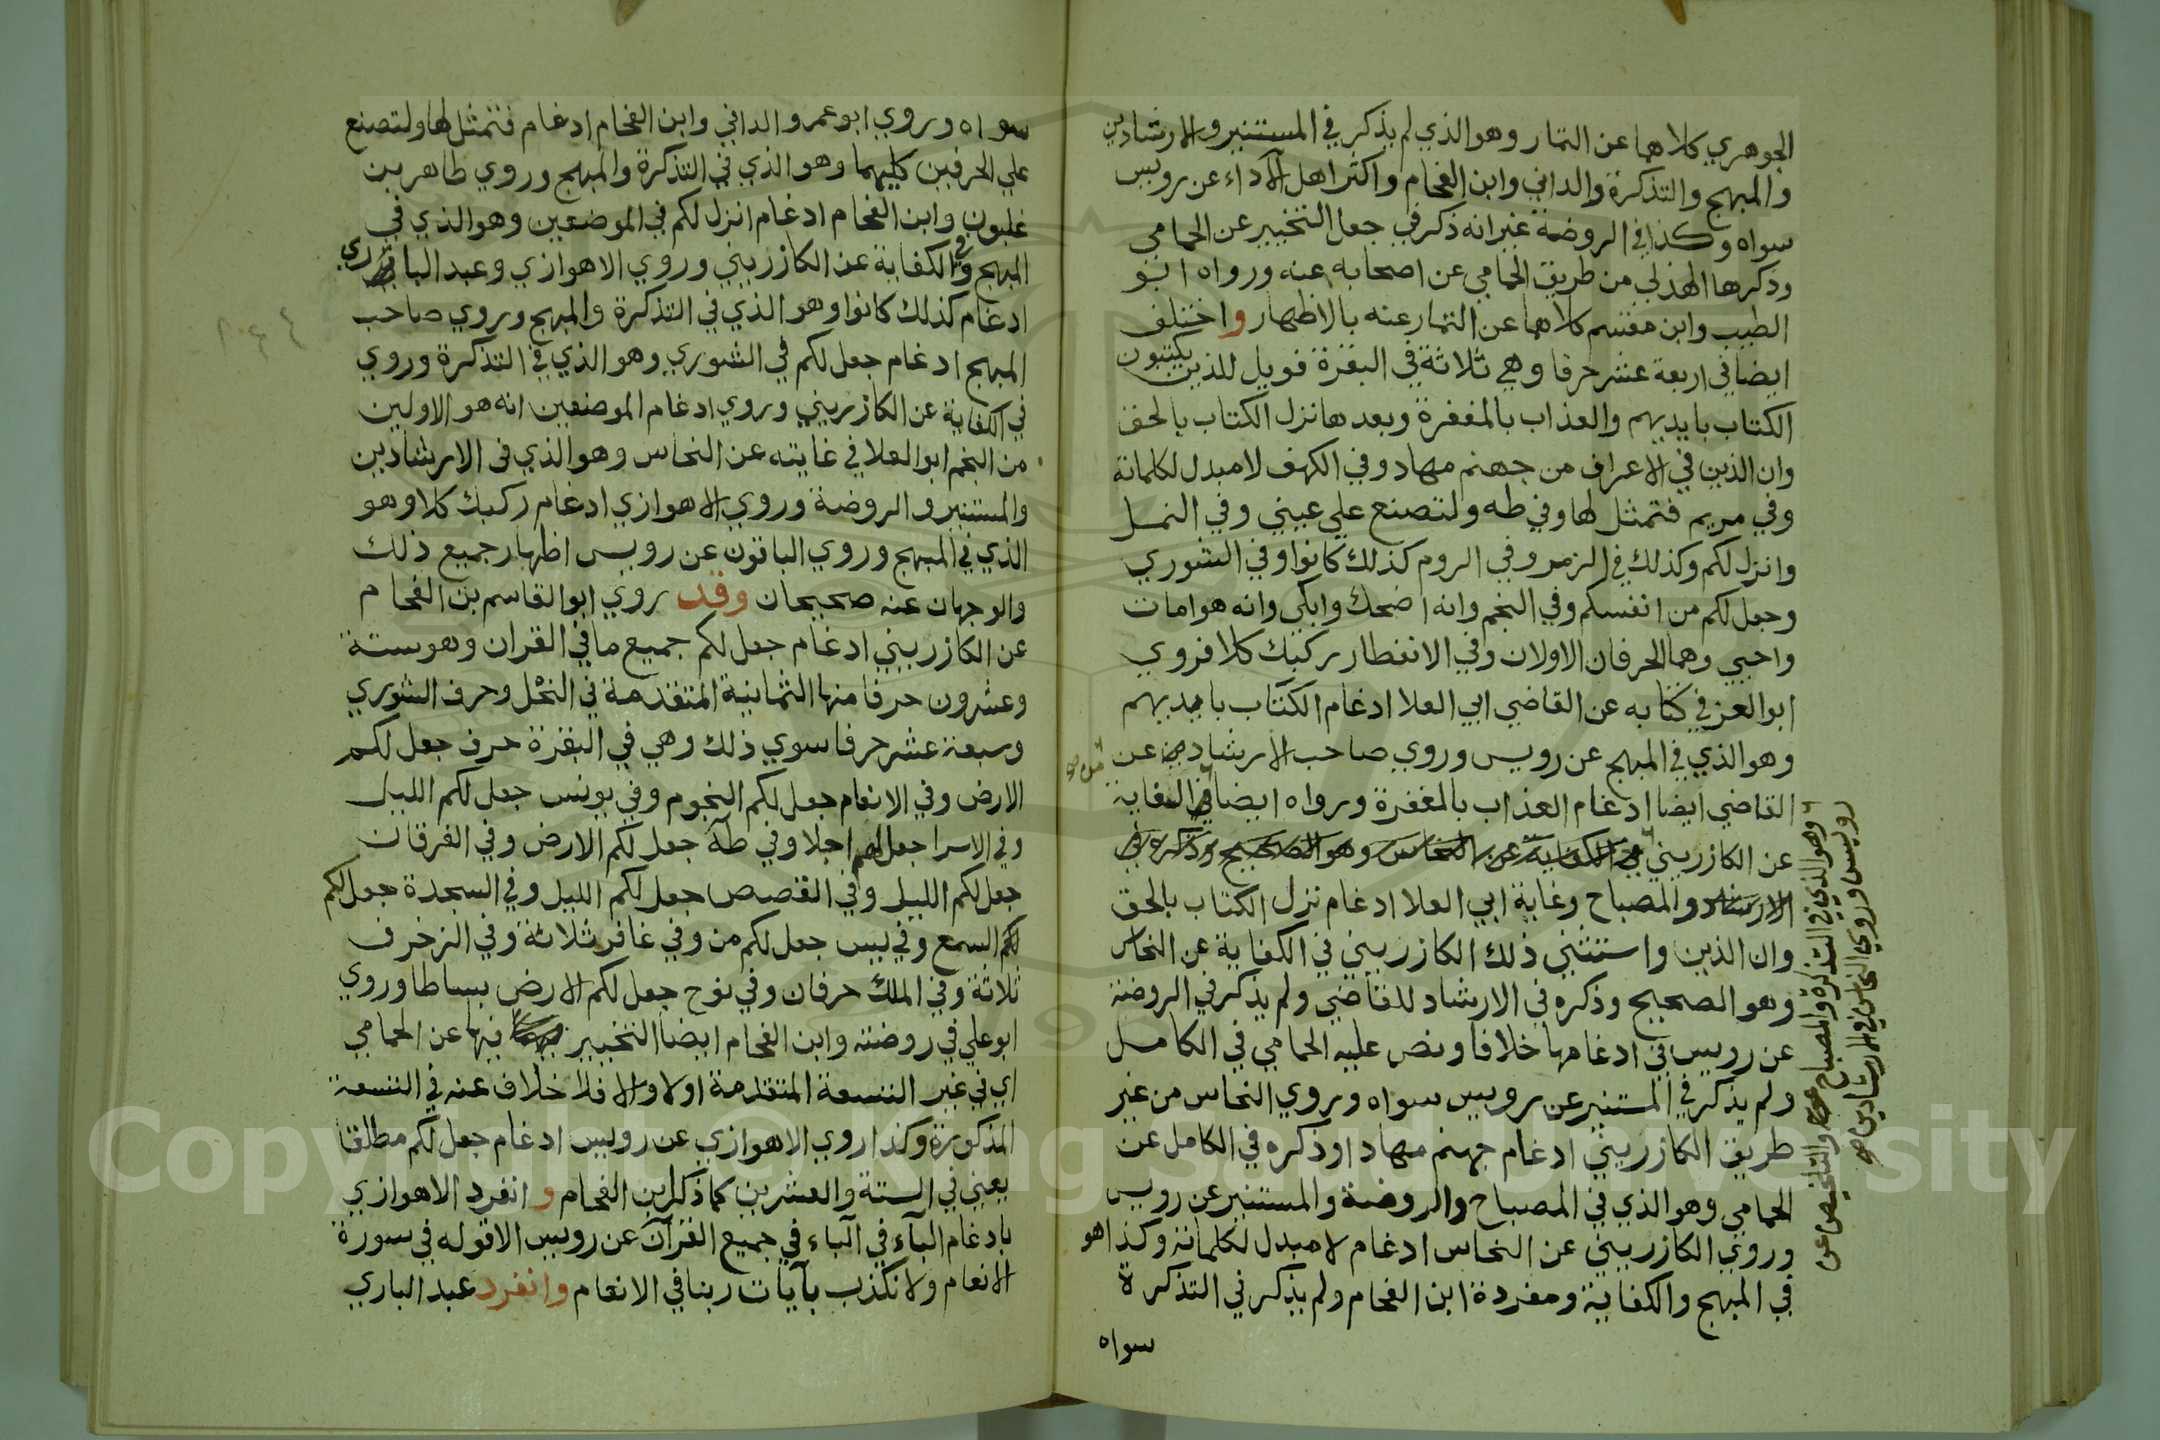 الجوهري كلاهما عن التمار وهو الذي لم يذكر في المستنير والارشادين
والمبهج والتذكرة والداني وابن الفحام واكثر اهل الاداء عن رويس
سواه وكذا في الروضة غير انه ذكر في جعل التخيير عن الحمامي
وذكرها الهذلي من طريق الحمامي عن اصحابه عنه ورواه ابو
الطيب وابن مقسم كلاهما عن التمار عنه بالاظهار واختلف
ايضا في اربعة عشر حرفا وهي ثلاثة في البقرة فويل للذين يكتبون
الكتاب بايديهم والعذاب بالمغفرة وبعدها نزل الكتاب بالحق
وان الذين في الاعراف من جهنم مهاد وفي الكهف لا مبدل لكلماته
وفي مريم فتمثل لها وفي طه ولتصنع علي عيني وفي النمل
وانزل لكم وكذلك في الزمر وفي الروم كذلك كانوا وفي الشوري
وجعل لكم من انفسكم وفي النجم وانه اضحك وابكي وانه هو امات
واحيي وهما الحرفان الاولان وفي الانفطار ركبك كلا فروي
ابو العز في كتابه عن القاضي ابي العلا ادغام الكتاب بايديهم
وهو الذي في المبهج عن رويس وروي صاحب الارشاد عن
القاضي ايضا ادغام العذاب بالمغفرة ورواه ايضا في الكفاية
عن الكازريني في الكفاية عن النحاس وهو الصحيح وذكره في
الارشاد والمصباح وغاية ابي العلا ادغام نزل الكتاب بالحق
وان الذين واستثني ذلك الكازريني في الكفاية عن النحاس
وهو الصحيح وذكره في الارشاد للقاضي ولم يذكر في الروضة
عن رويس في ادغامها خلافا ونص عليه الحمامي في الكامل
ولم يذكر في المستنير عن رويس سواه وروي النحاس من غير
طريق الكازريني ادغام جهنم مهاد اوذكره في الكامل عن
الحمامي وهو الذي في المصباح والروضة والمستنير عن رويس
وروي الكازريني عن النحاس ادغام لا مبدل لكلماته وكذا هو
في المبهج والكفاية ومفردة ابن الفحام ولم يذكر في التذكرة
سواه
وهو الذي في التذكرة والمصباح والتلخيص عن
رويس وروي النحاس في الارشادين صح
سواه وروي ابو عمرو الداني وابن الفحام ادغام فتمثل لها ولتصنع
علي الحرفين كليهما وهو الذي في التذكرة والمبهج وروي طاهر بن
غلبون وابن الفحام ادغام انزل لكم في الموضعين وهو الذي في
المبهج وفي الكفاية عن الكازريني وروي الاهوازي وعبد الباري
ادغام كذلك كانوا وهو الذي في التذكرة والمبهج وروي صاحب
المبهج ادغام جعل لكم في الشوري وهو الذي في التذكرة وروي
في الكفاية عن الكازريني وروي ادغام الموضعين انه هو الاولين
من النجم ابو العلا في غايته عن النحاس وهو الذي في الارشادين
والمستنير والروضة وروي الاهوازي ادغام ركبك كلا وهو
الذي في المبهج وروي الباقون عن رويس اظهار جميع ذلك
والوجهان عنه صحيحان وقد روي ابو القاسم بن الفحام
عن الكازريني ادغام جعل لكم جميع ما في القران وهو ستة
وعشرون حرفا منها الثمانية المتقدمة في النحل وحرف الشوري
وسبعة عشر حرفا سوي ذلك وهي في البقرة حرف جعل لكم
الارض وفي الانعام جعل لكم النجوم وفي يونس جعل لكم الليل
وفي الاسرا جعل لهم اجلا وفي طه جعل لكم الارض وفي الفرقان
جعل لكم الليل وفي القصص جعل لكم الليل وفي السجدة جعل لكم
لكم السمع وفي يس جعل لكم من وفي غافر ثلاثة وفي الزخرف
ثلاثة وفي الملك حرفان وفي نوح جعل لكم الارض بساطا وروي
ابو علي في روضته وابن الفحام ايضا التخيير فيها عن الحمامي
اي في غير التسعة المتقدمة اولا والا فلا خلاف عنه في التسعة
المذكورة وكذا روي الاهوازي عن رويس ادغام جعل لكم مطلقا
يعني في الستة والعشرين كما ذكر ابن الفحام وانفرد الاهوازي
بادغام الباء في الباء في جميع القرآن عن رويس الا قوله في سورة
الانعام ولا نكذب بآيات ربنا في الانعام وانفرد عبد الباري
Copyright © King Saud University